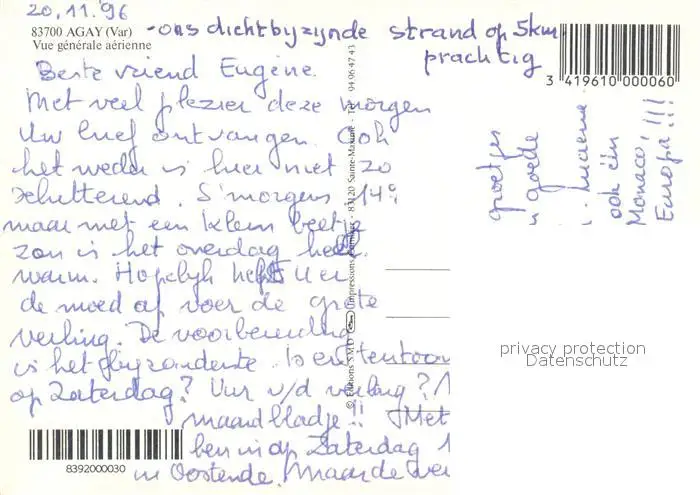 20.11.'96
83700 AGAY (Var)
Vue générale aérienne
-ons dichtbyzijnde strand op 5km
prachtig
3 419610 000060
Beste vriend Eugène.
Met veel plezier deze morgen
Uw brief ontvangen. Ook
het weder is hier niet zo
schitterend. S'morgens 14°
maar met een klein beetje
zon is het overdag heel
warm. Hopelyk hebt U er
de moed af voor de grote
veiling. De voorbereiding
is het byzonderste. Is er
op Zaterdag? Uur v/d veiling?
maandbladje!! Met
ben in op Zaterdag
in Oostende. Maar de
groetjes
goede
Lucienne
ook één
Monaco!!!
Europa!!!
© Editions S.M.D. Impressions Combier - 83120 Sainte-Maxime - Tél. 94 96 47 43
privacy protection
Datenschutz
8392000030